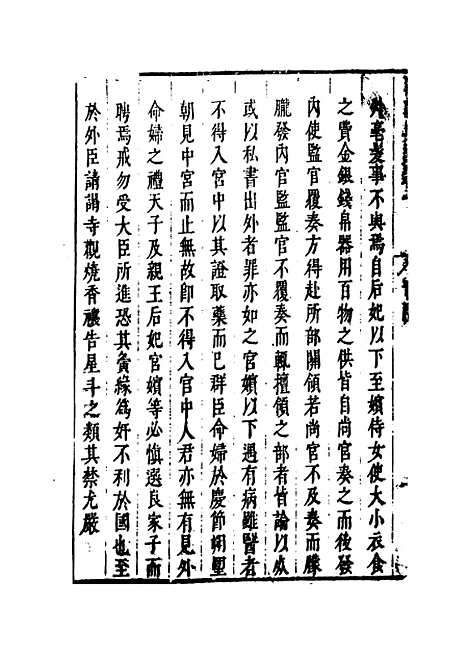 外喜慶事不與焉自后妃以下至嬪侍女使大小衣食
之費金銀錢帛器用百物之供皆自尚官奏之而後發
內使監官覆奏方得赴所部關領若尚官不及奏而朦
朧發內官監監官不覆奏而輒擅領之部者皆論以死
或以私書出外者罪亦如之宮嬪以下遇有病雖醫者
不得入宮中以其證取藥而已群臣命婦於慶節朔望
朝見中宮而止無故即不得入宮中人君亦無有見外
命婦之禮天子及親王后妃宮嬪等必慎選良家子而
聘焉戒勿受大臣所進恐其夤緣為奸不利於國也至
於外臣請謁寺觀燒香禳告星斗之類其禁尤嚴